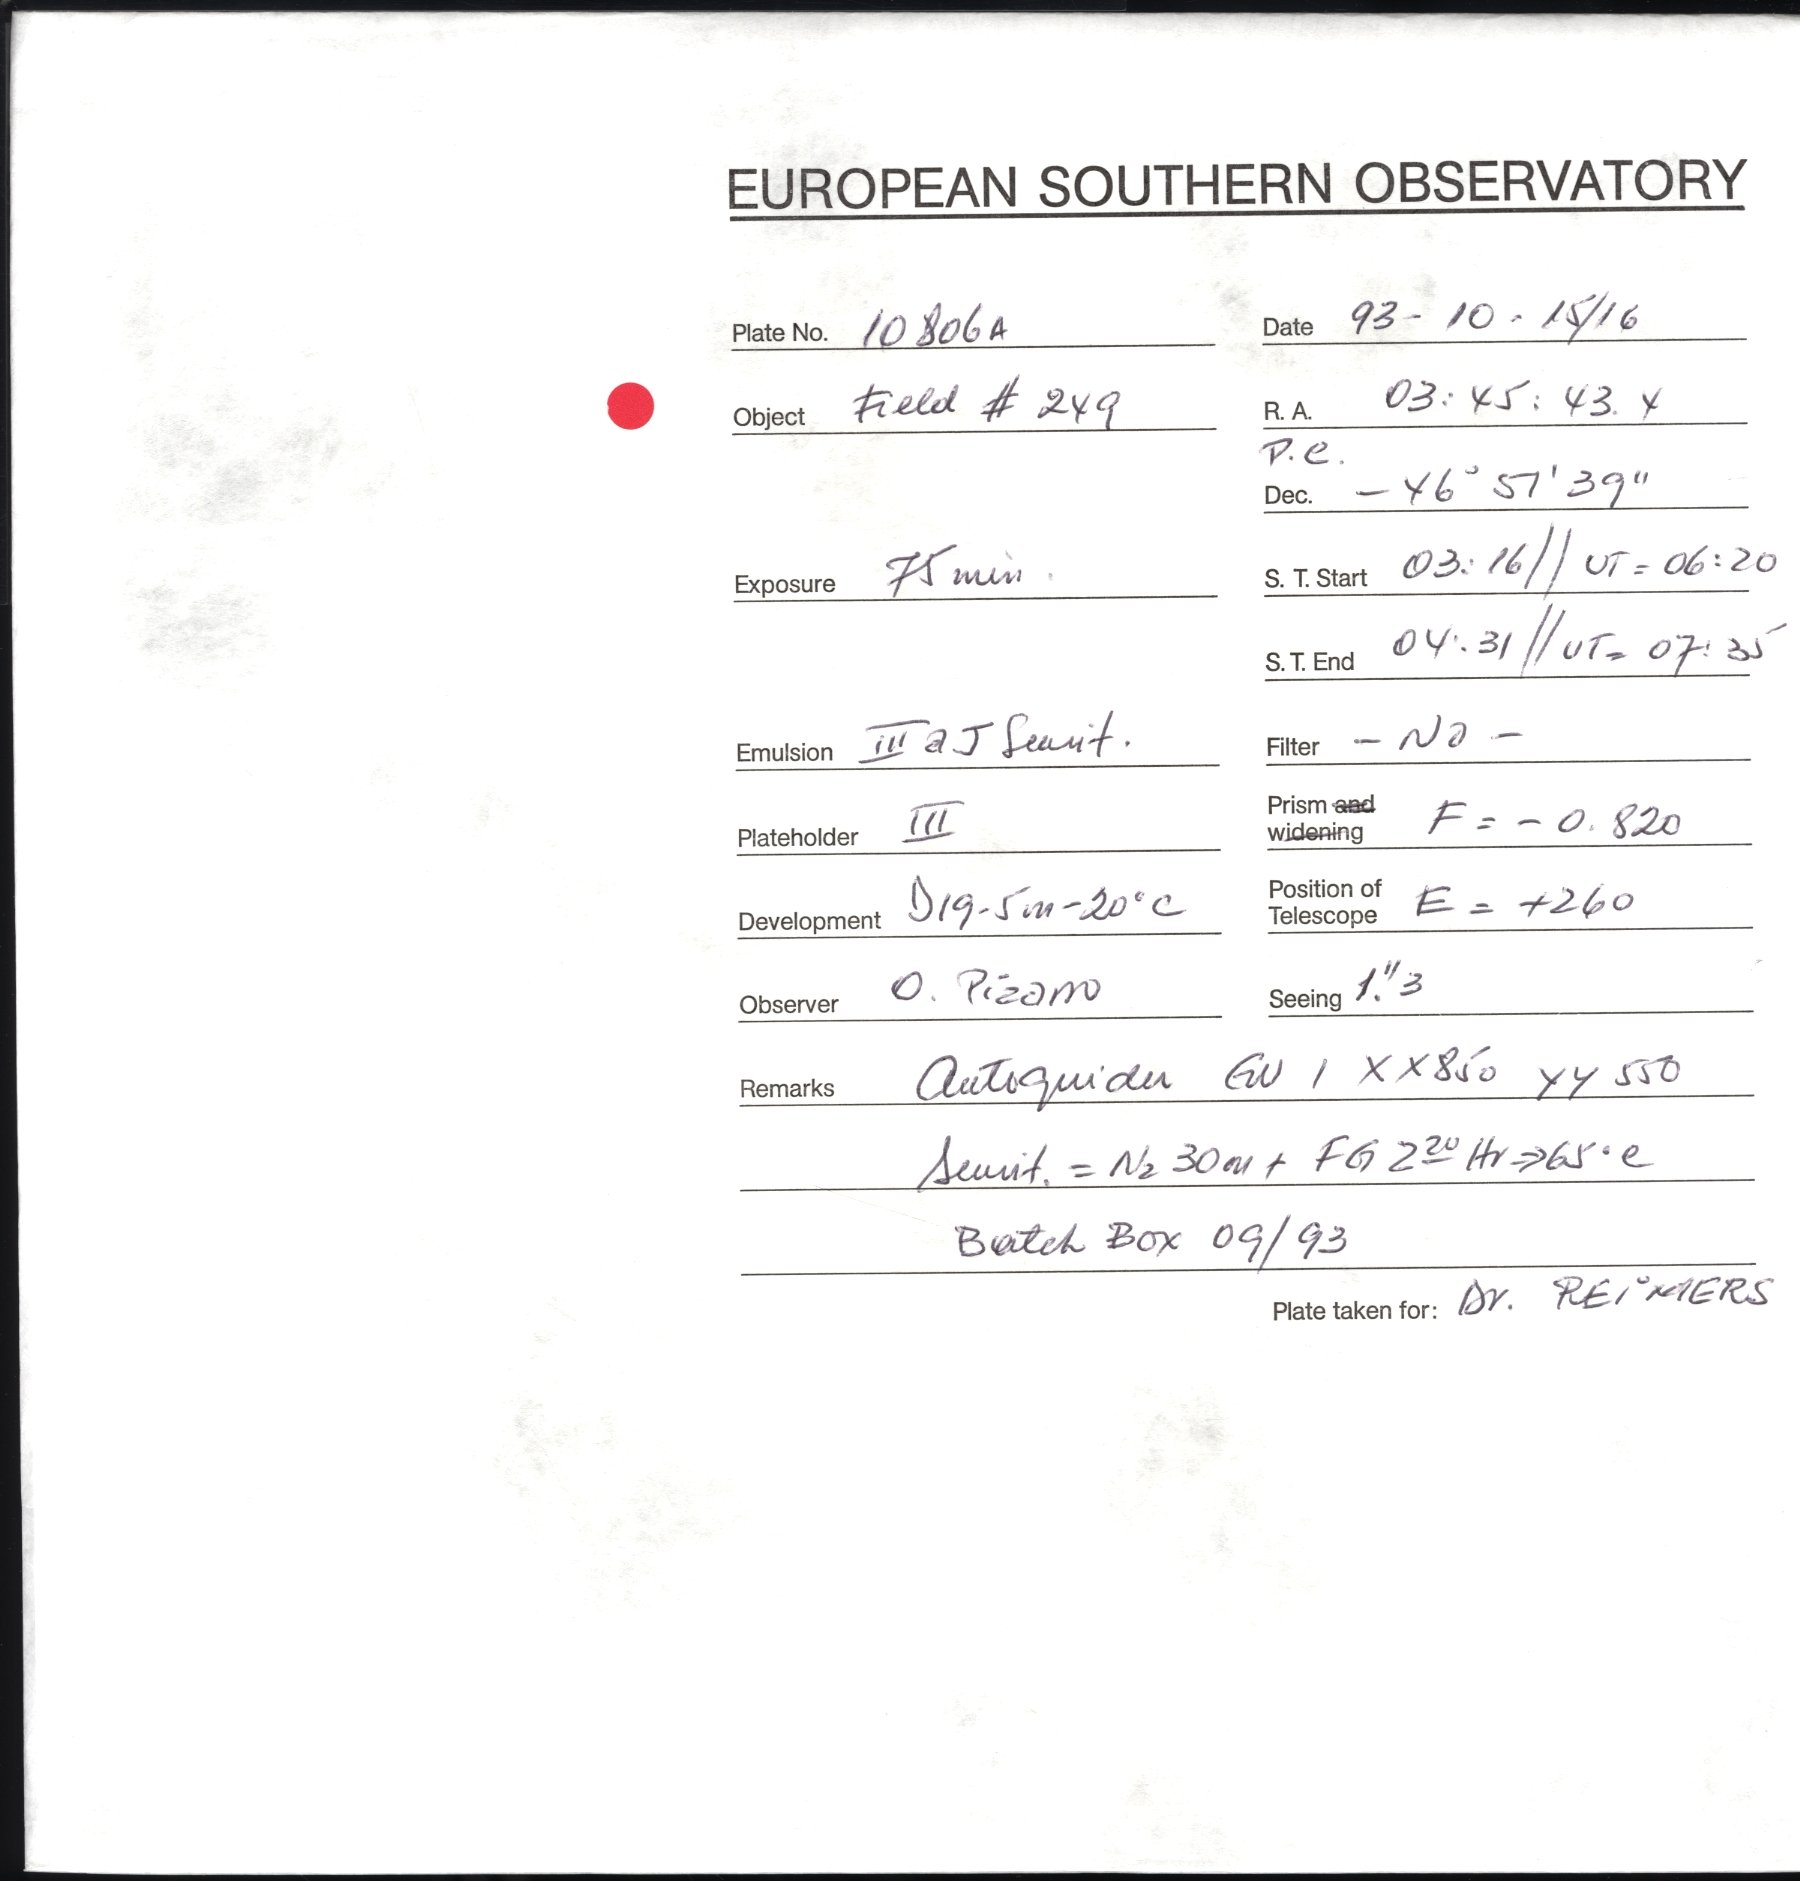 EUROPEAN SOUTHERN OBSERVATORY
Plate No. 10806A Date 93-10-15/16
Object Field # 249 R. A. 03:45:43.4
P.e.
Dec. -46° 57' 39"
Exposure 75 min. S. T. Start 03:16 // UT = 06:20
S. T. End 04:31 // UT = 07:35
Emulsion III a J Sensit. Filter - No -
Plateholder III Prism and widening F = - 0.820
Development D19-5m-20°C Position of Telescope E = +260
Observer O. Pizarro Seeing 1."3
Remarks Autoguider GW 1 XX850 YY 550
Sensit. = N2 30m + FG 2 20 Hr ⇒65°C
Batch Box 09/93
Plate taken for: Dr. REIMERS